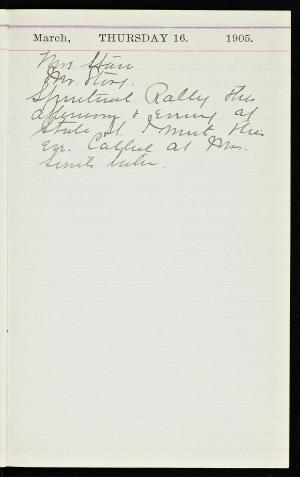 March, THURSDAY 16. 1905.
Mrs. Starr
Mr. Story.
Spiritual Rally this
afternoon & Evening at
State St I went this
Eve. Called at Mrs.